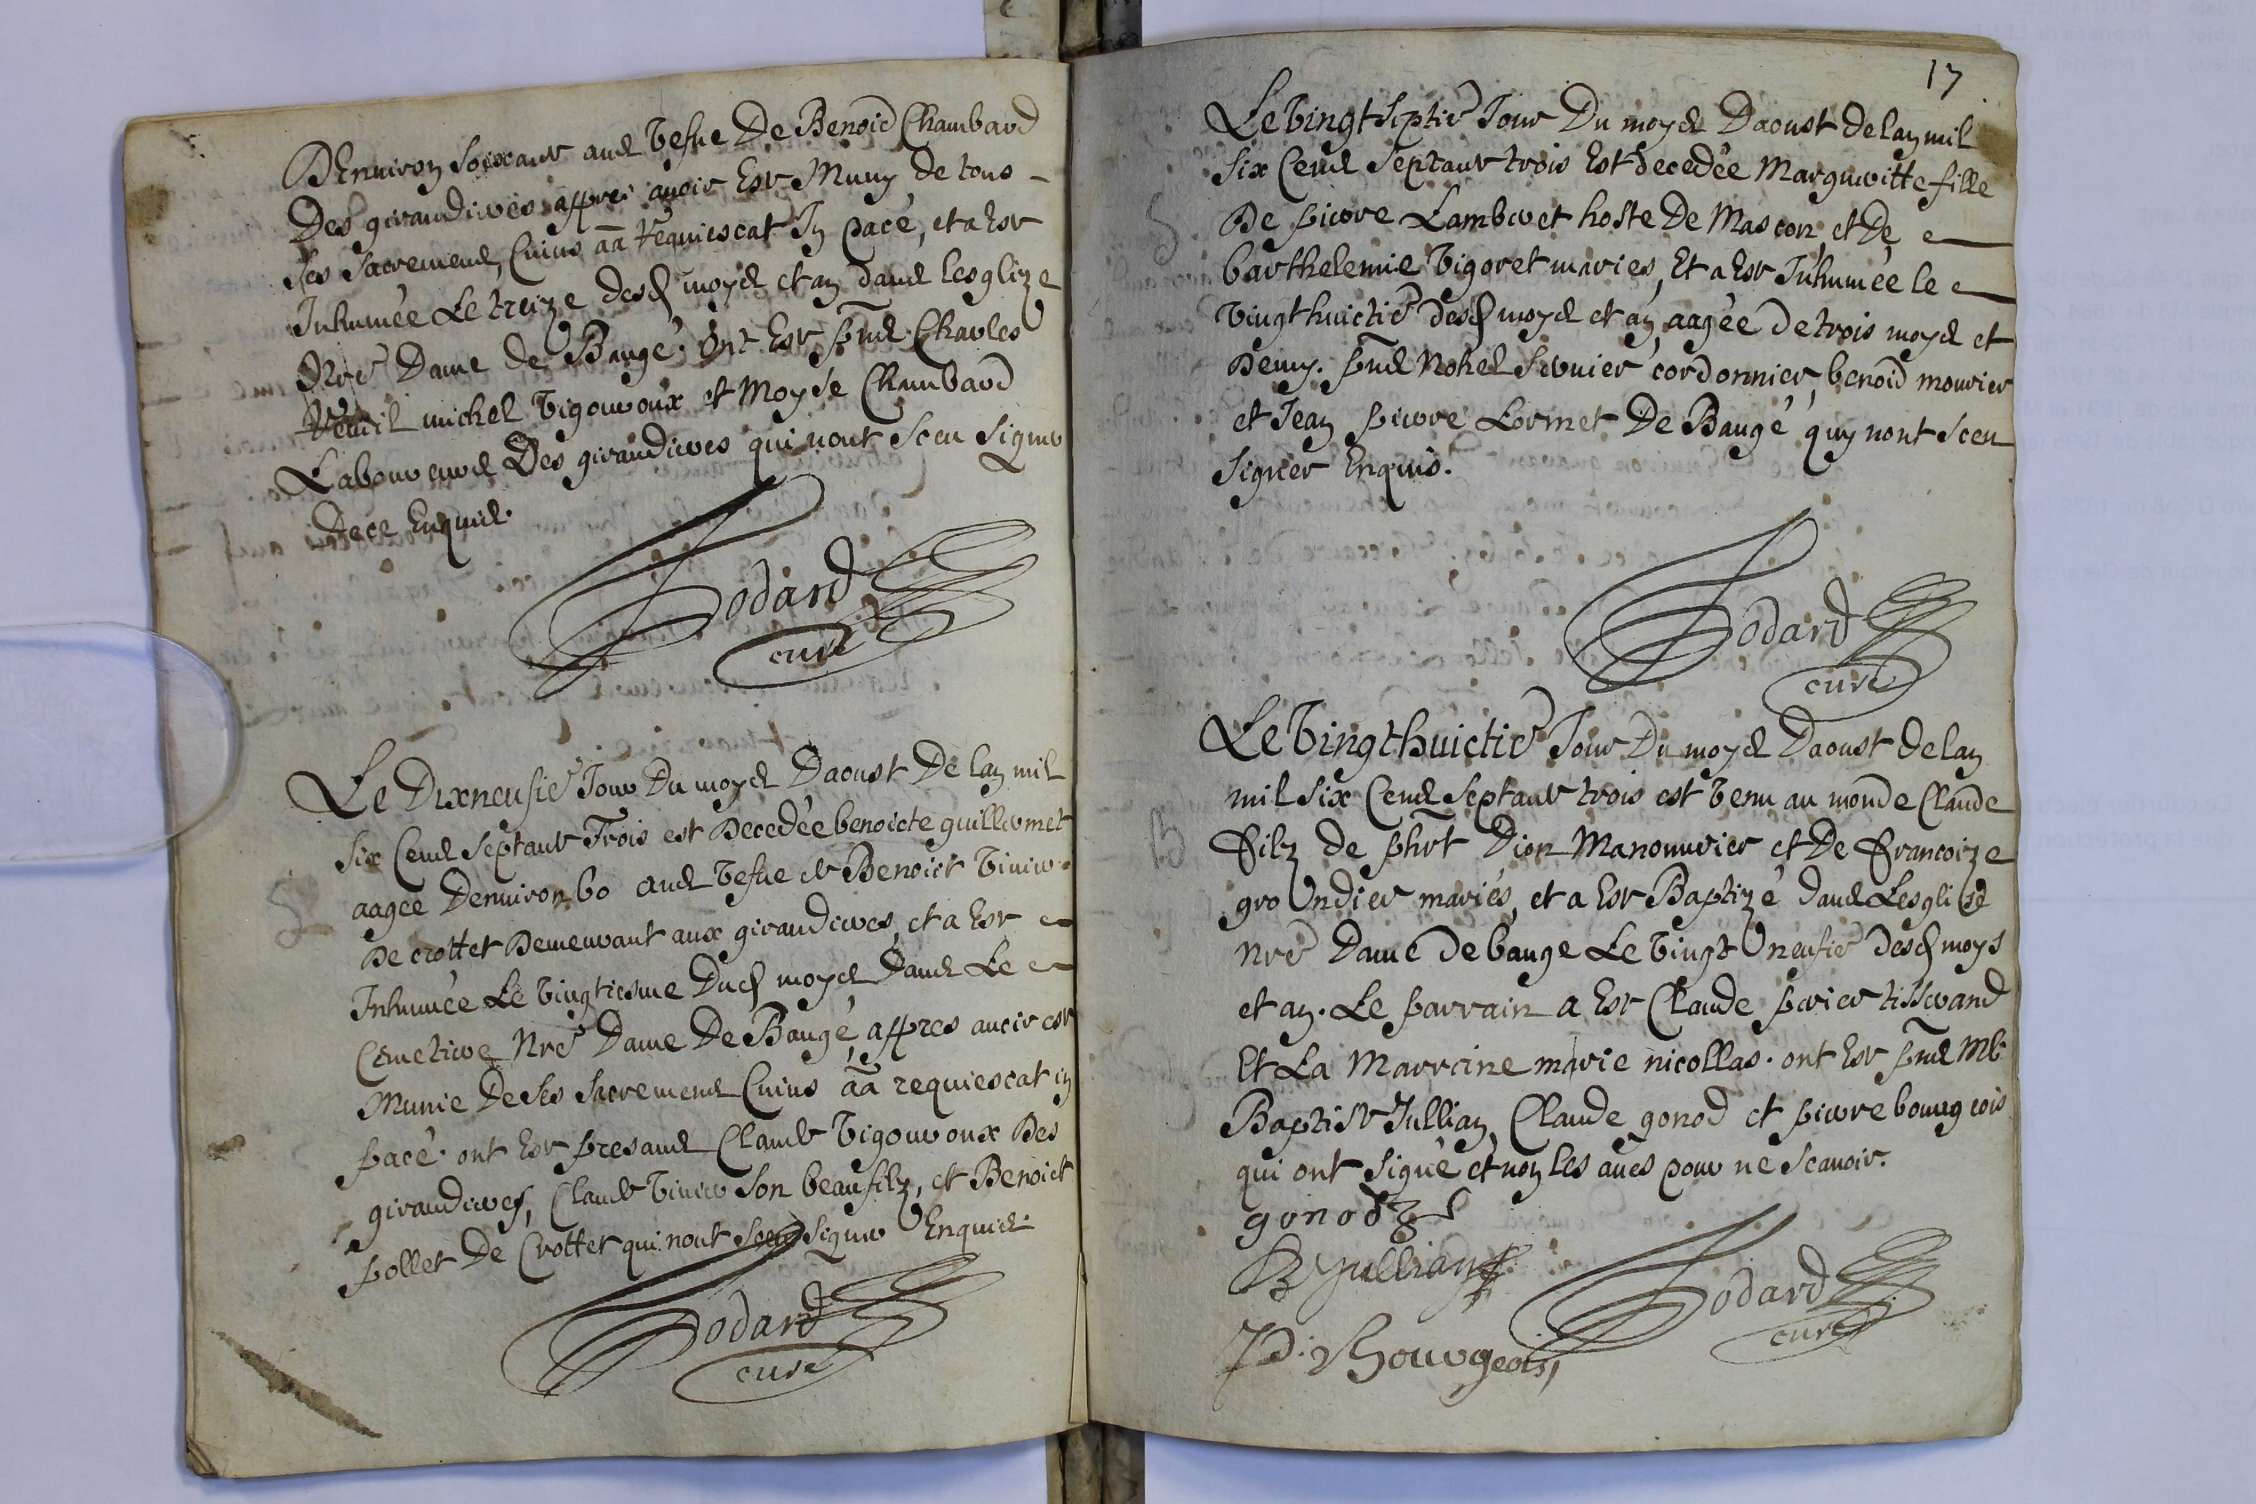 DEnuiron soixante ans vefue De Benoid Chambard
Des girandieres appres auoir Este Muny de tous
ses sacremens, Cuius aā Requiescat In pace, et a Este
Inhumée Le treize desd moys et an dans lesglize
Nre Dame de Baugé. Ont Este pns Charles
michel Vigouroux et Moyse Chambard
Laboureurs Des girandieres qui nont sceu signer
dece Enquis.
Godard
curé
Le Dixneufie Jour Du moys Daoust De lan mil
six Cens septante Trois est Decedée benoicte guillermet
aagée Denuiron 60 ans vefue de Benoict Viuier
De crottet Demeurant aux girandieres, et a Este
Inhumée Le vingtiesme Dud moys Dans Le
Cemetiere Nre Dame De Baugé appres auoir este
Munie De ses sacremens Cuius aā requiescat in
pace. ont Este presans Claude Vigouroux Des
girandieres, Claude Viuier son beaufilz, et Benoict
pollet De Crottet qui nont sceu signer Enquis.
Godard
curé
17
Le vingt septie Jour Du moys Daoust de lan mil
six Cens septante trois Est decedée Marguerite fille
De pierre Lamberet hoste De Mascon et De
barthelemie Vigoret mariés, Et a Este Inhumée le
vingthuictie desd moys et an, aagée de trois moys et
Demy. pns Nohel cordonnier, benoid mourier
et Jean pierre Lormet De Baugé quy nont sceu
signer Enquis.
S
Godard
curé
Le Vingthuictie Jour Du moys Daoust de lan
mil six Cens septante trois est venu au monde Claude
filz de phrt Dion Manouurier et De francoize
grondier mariés, et a Este Baptizé dans Lesglize
B
Nre Dame de bauge Le vingt neufie desd moys
et an. Le parrain a Este Claude perier tisserand
Et La Marraine marie nicollas. ont Este pns Mr
Baptiste Jullian, Claude gonod et pierre bourgeois
qui ont signé et non les aues pour ne scauoir.
gonod
B Jullian
P. Bourgeois
Godard
curé